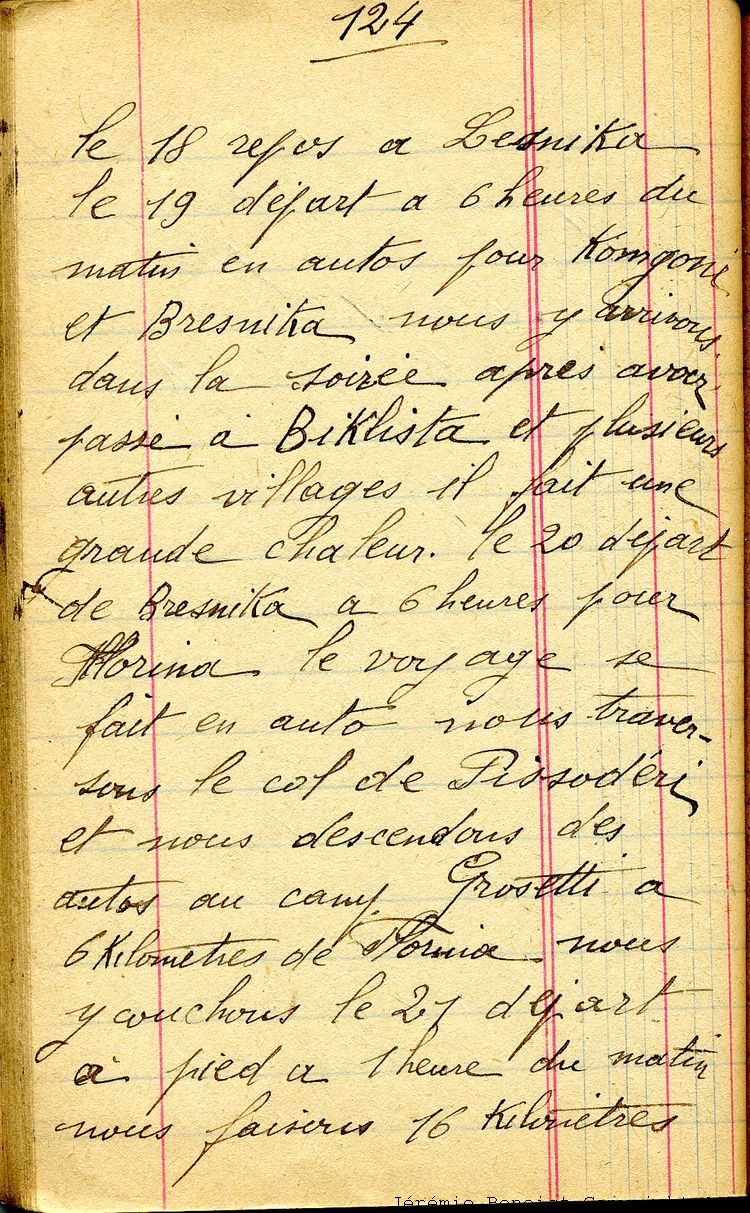 124
le 18 repos a Lesnika
le 19 départ a 6 heures du
matin en autos pour Komgoni
et Bresnika nous y arrivons
dans la soirée après avoir
passé à Biklista et plusieurs
autres villages il fait une
grande chaleur. le 20 départ
de Bresnika a 6 heures pour
Florina le voyage se
fait en auto nous traver-
sons le col de Pissodéri
et nous descendons des
autos au camp Grosetti a
6 Kilometres de Florina nous
y couchons le 21 départ
à pied a 1 heure du matin
nous faisons 16 Kilométres
Jérémie Benoist